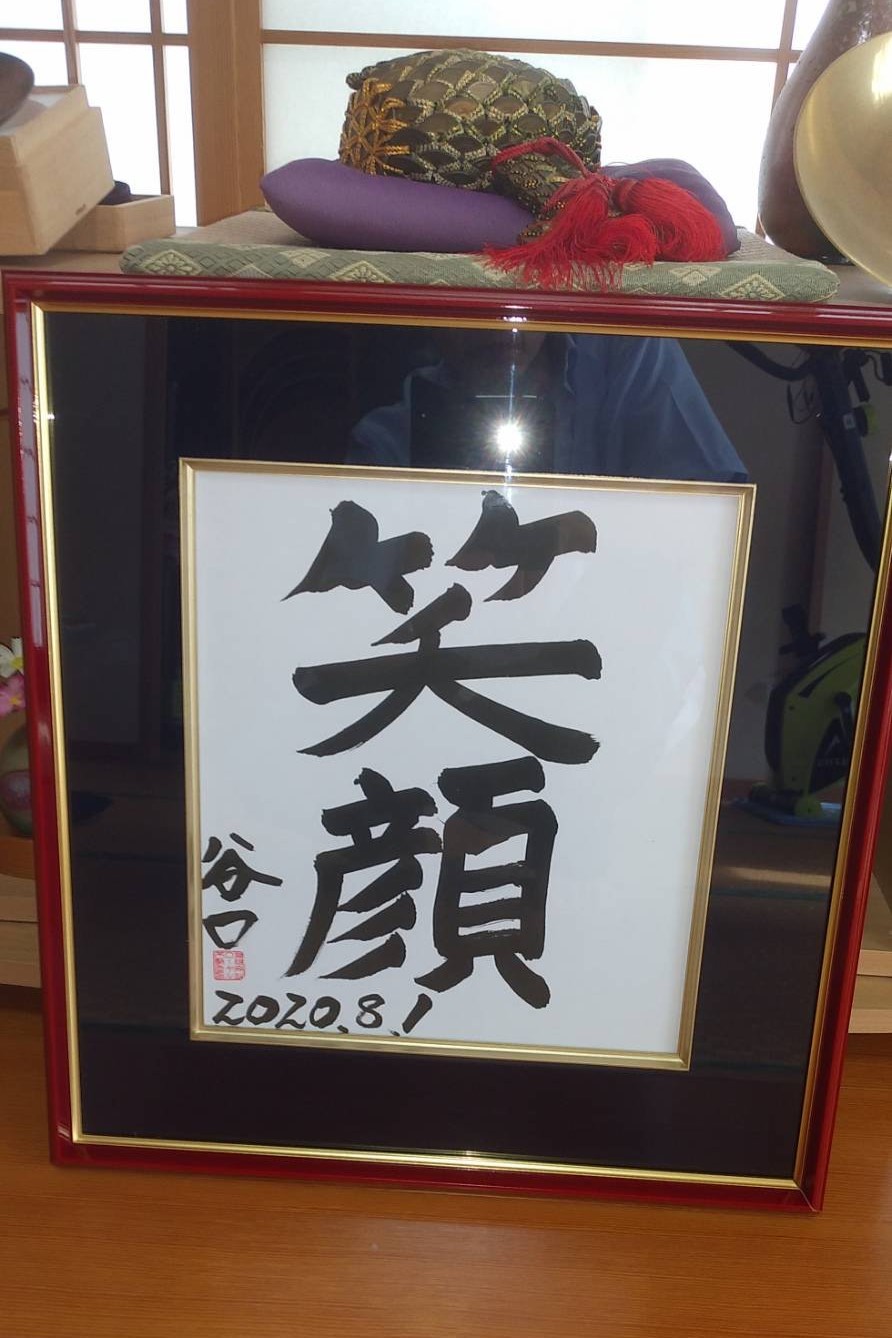 笑顔
谷口
2020.8.1